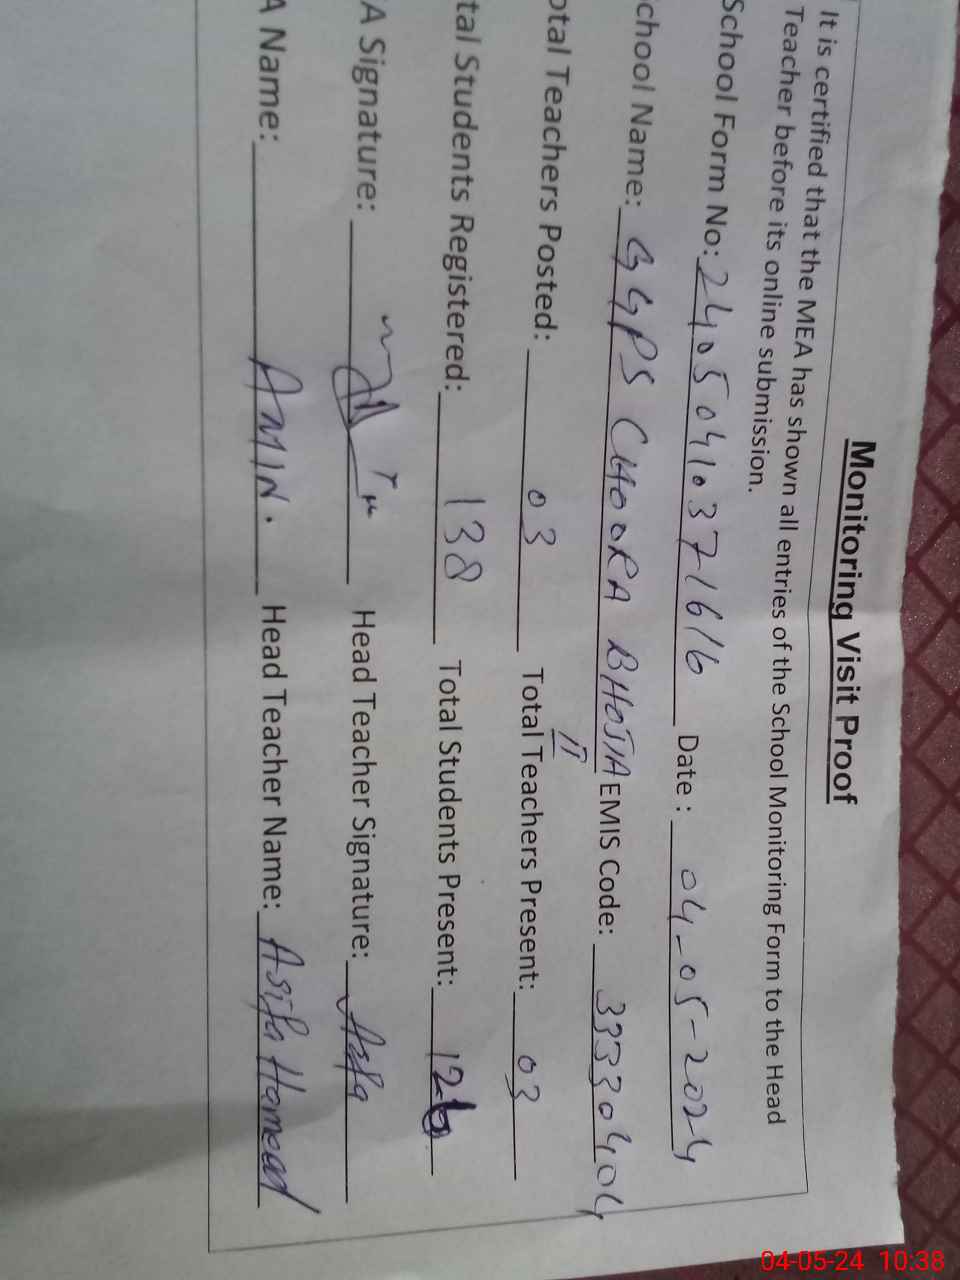 Monitoring Visit Proof
It is certified that the MEA has shown all entries of the School Monitoring Form to the Head
Teacher before its online submission.
School Form No: 2405041037 1616 Date : 04-05-2024
chool Name: GGPS CHOORA BHOJIA II EMIS Code: 33330404
otal Teachers Posted: 03 Total Teachers Present: 03
tal Students Registered: 138 Total Students Present:
A Signature: Head Teacher Signature: Asifa
A Name: AMIN. Head Teacher Name: Asifa Hameed
04-05-24 10:38